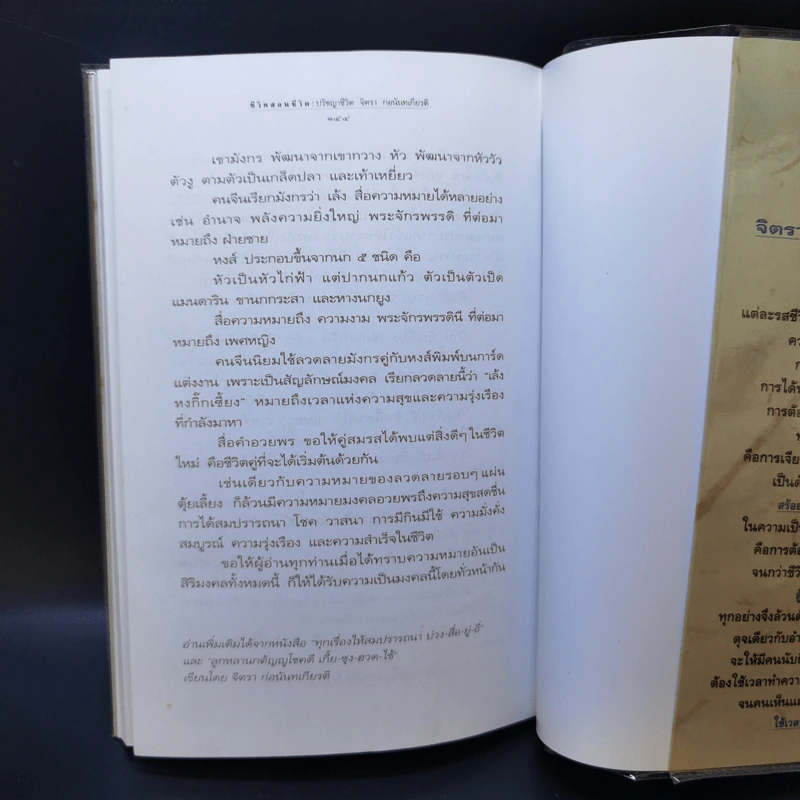 ชีวิตสอนชีวิต : ปรัชญาชีวิต จิตรา ก่อนันทเกียรติ
๑๔๔
เขามังกร พัฒนาจากเขากวาง หัว พัฒนาจากหัววัว
ตัวงู ตามตัวเป็นเกล็ดปลา และเท้าเหยี่ยว
คนจีนเรียกมังกรว่า เล้ง สื่อความหมายได้หลายอย่าง
เช่น อำนาจ พลังความยิ่งใหญ่ พระจักรพรรดิ ที่ต่อมา
หมายถึง ฝ่ายชาย
หงส์ ประกอบขึ้นจากนก ๕ ชนิด คือ
หัวเป็นหัวไก่ฟ้า แต่ปากนกแก้ว ตัวเป็นตัวเป็ด
แมนดาริน ขานกกระสา และหางนกยูง
สื่อความหมายถึง ความงาม พระจักรพรรดินี ที่ต่อมา
หมายถึง เพศหญิง
คนจีนนิยมใช้ลวดลายมังกรคู่กับหงส์พิมพ์บนการ์ด
แต่งงาน เพราะเป็นสัญลักษณ์มงคล เรียกลวดลายนี้ว่า "เล้ง
หงกิ๊กเซี้ยง" หมายถึงเวลาแห่งความสุขและความรุ่งเรือง
ที่กำลังมาหา
สื่อคำอวยพร ขอให้คู่สมรสได้พบแต่สิ่งดีๆ ในชีวิต
ใหม่ คือชีวิตคู่ที่จะได้เริ่มต้นด้วยกัน
เช่นเดียวกับความหมายของลวดลายรอบๆ แผ่น
ตุ้ยเลี้ยง ก็ล้วนมีความหมายมงคลอวยพรถึงความสุขสดชื่น
การได้สมปรารถนา โชค วาสนา การมีกินมีใช้ ความมั่งคั่ง
สมบูรณ์ ความรุ่งเรือง และความสำเร็จในชีวิต
ขอให้ผู้อ่านทุกท่านเมื่อได้ทราบความหมายอันเป็น
สิริมงคลทั้งหมดนี้ ก็ให้ได้รับความเป็นมงคลนี้โดยทั่วหน้ากัน
อ่านเพิ่มเติมได้จากหนังสือ "ทุกเรื่องให้สมปรารถนา ปวง-สื่อ-ยู่-อี่"
และ "ลูกหลานกตัญญูโชคดี เกี้ย-ซุง-ฮวด-ไช้"
เขียนโดย จิตรา ก่อนันทเกียรติ
จิตรา
แต่ละรสชี
คว
การได้
การต้อ
คือการเจีย
เป็นด้
สร้อย
ในความเป็น
คือการต้อ
จนกว่าชีวิ
ทุกอย่างจึงล้วนต้
ดุจเดียวกับอำ
จะให้มีคนนับถื
ต้องใช้เวลาทำควา
จนคนเห็นแ
ใช้เวล